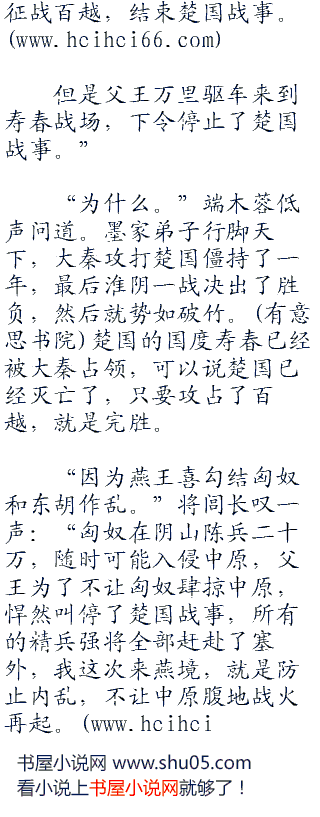 征战百越，结束楚国战事。
(www.hcihci66.com)
但是父王万里驱车来到
寿春战场，下令停止了楚国
战事。”
“为什么。”端木蓉低
声问道。墨家弟子行脚天
下，大秦攻打楚国僵持了一
年，最后淮阴一战决出了胜
负，然后就势如破竹。(有意
思书院)楚国的国度寿春已经
被大秦占领，可以说楚国已
经灭亡了，只要攻占了百
越，就是完胜。
“因为燕王喜勾结匈奴
和东胡作乱。”将闾长叹一
声：“匈奴在阴山陈兵二十
万，随时可能入侵中原，父
王为了不让匈奴肆掠中原，
悍然叫停了楚国战事，所有
的精兵强将全部赶赴了塞
外，我这次来燕境，就是防
止内乱，不让中原腹地战火
再起。(www.hcihci
书屋小说网 www.shu05.com
看小说上书屋小说网就够了！